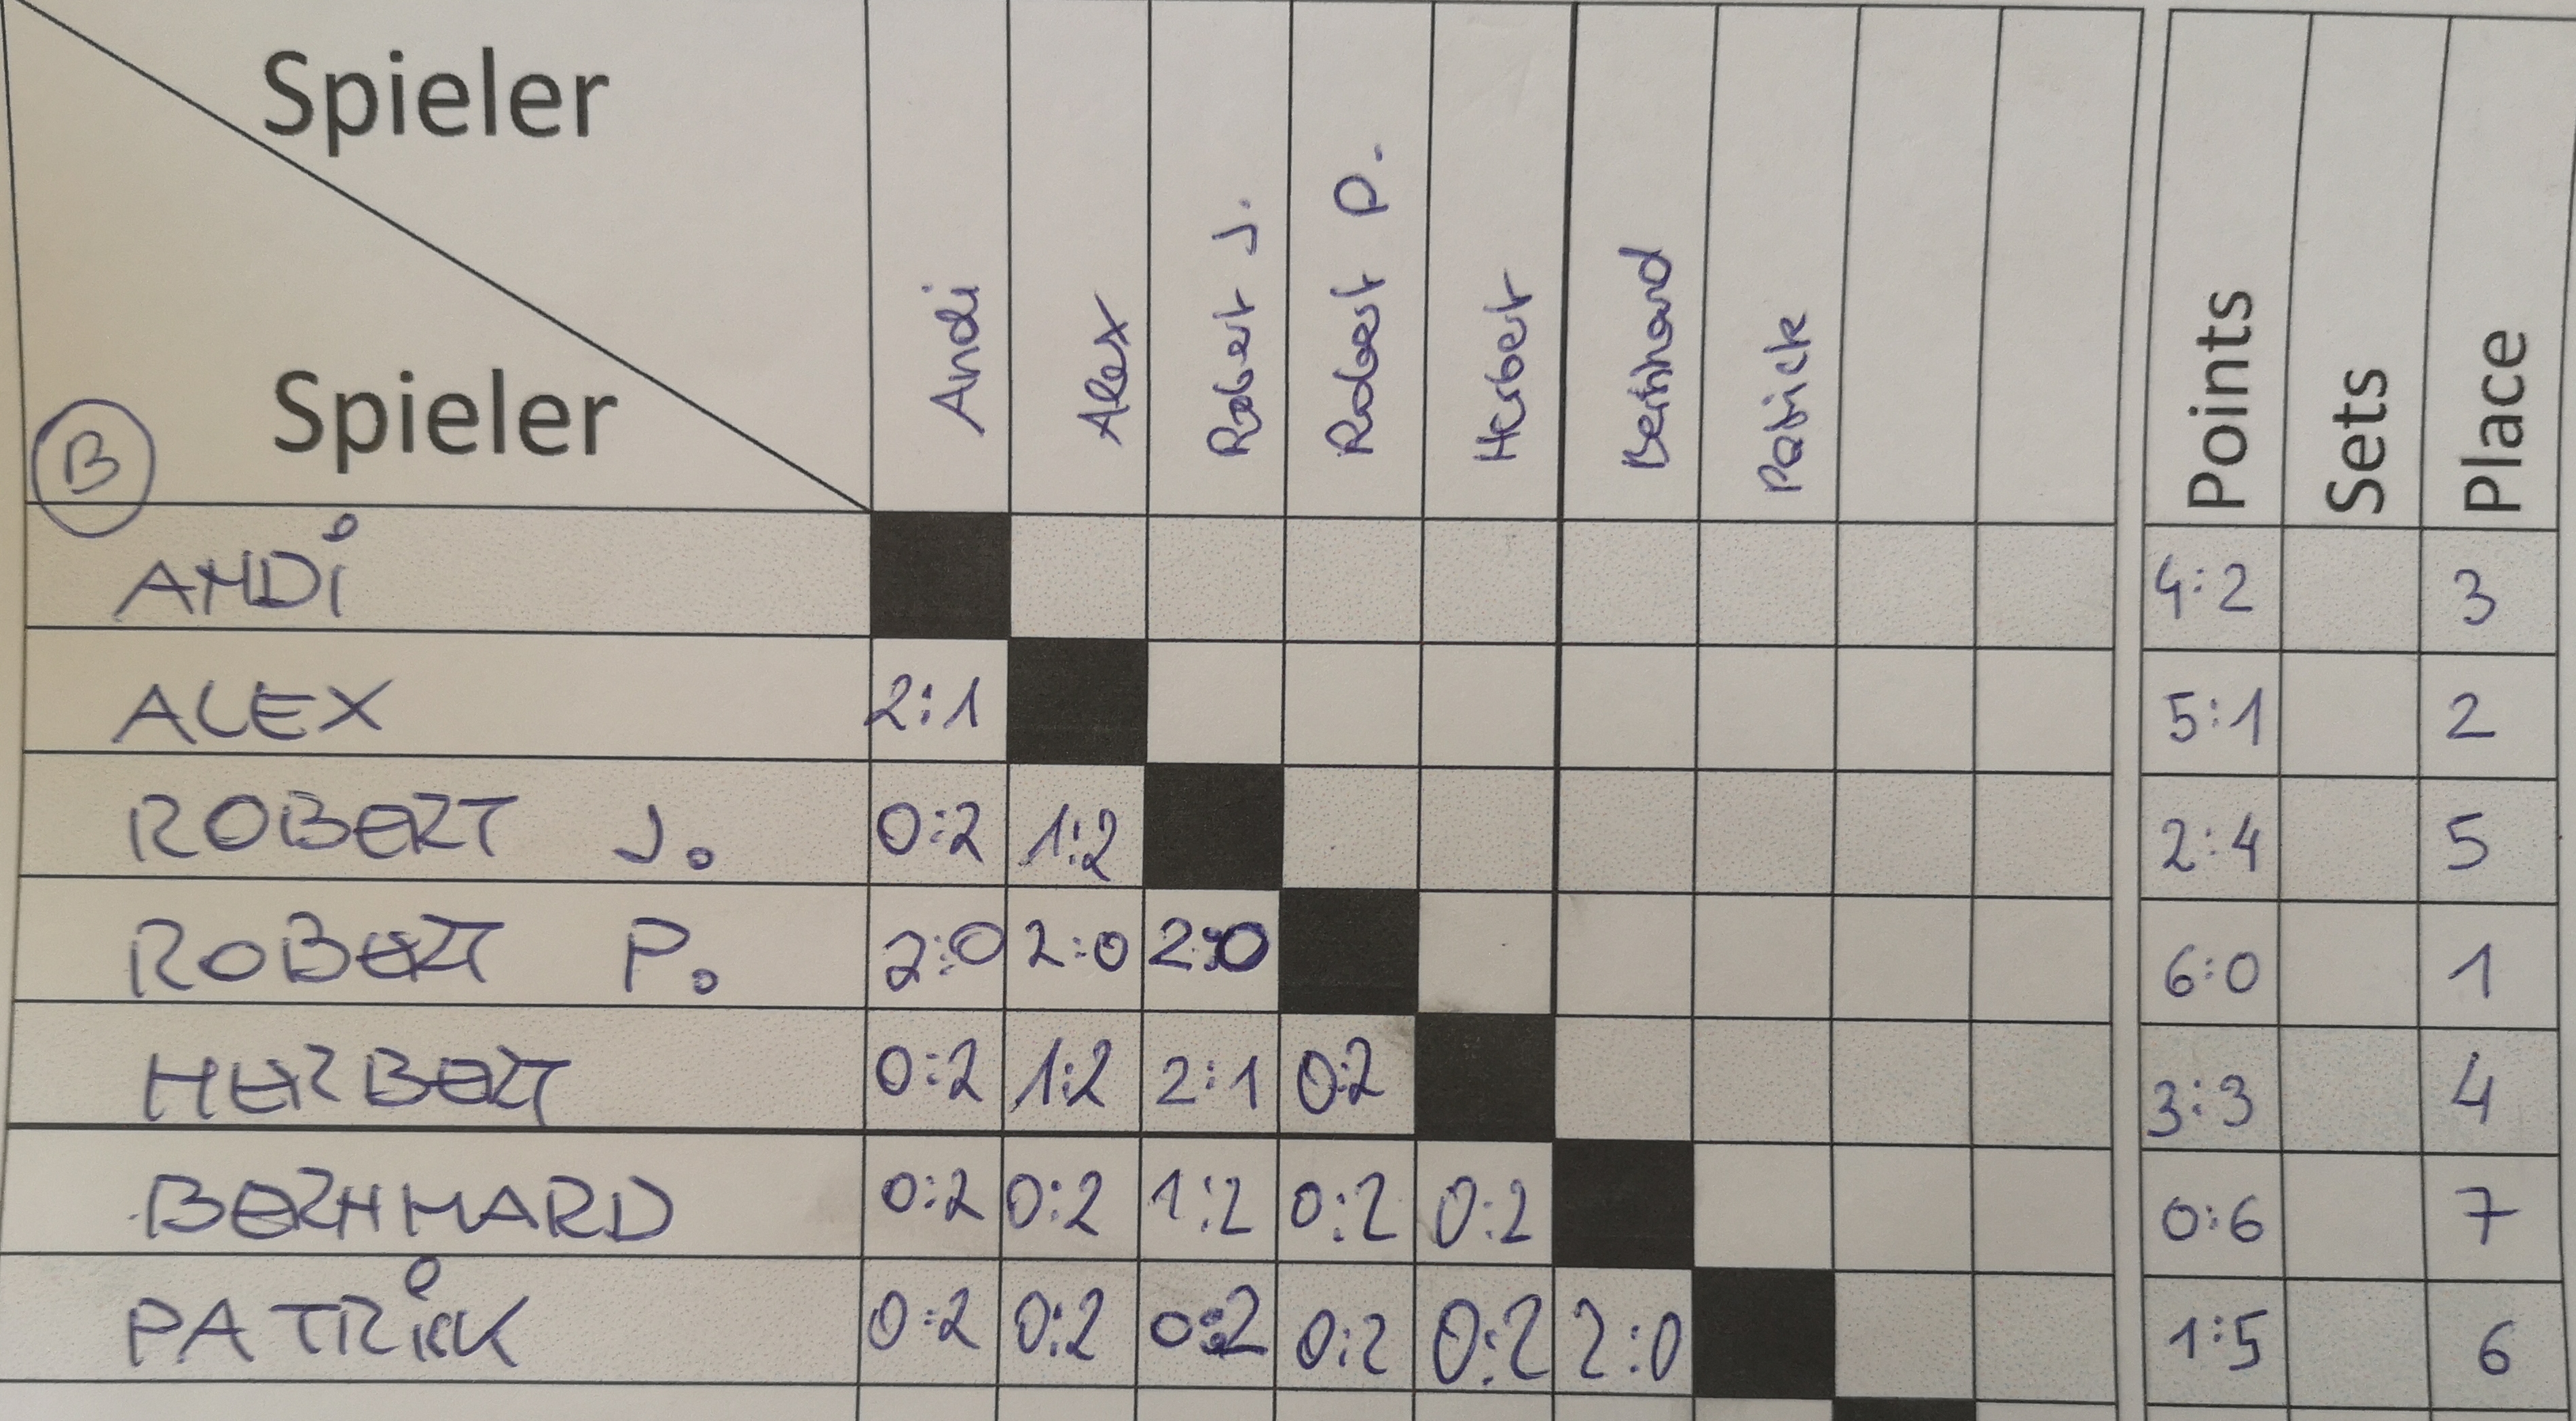 Spieler
Spieler
B
Andi Alex Robert J. Robert P. Herbert Bernhard Patrick Points Sets Place
ANDi 4:2 3
ALEX 2:1 5:1 2
ROBERT J. 0:2 1:2 2:4 5
ROBERT P. 2:0 2:0 2:0 6:0 1
HERBERT 0:2 1:2 2:1 0:2 3:3 4
BERNHARD 0:2 0:2 1:2 0:2 0:2 0:6 7
PATRiCK 0:2 0:2 0:2 0:2 0:2 2:0 1:5 6